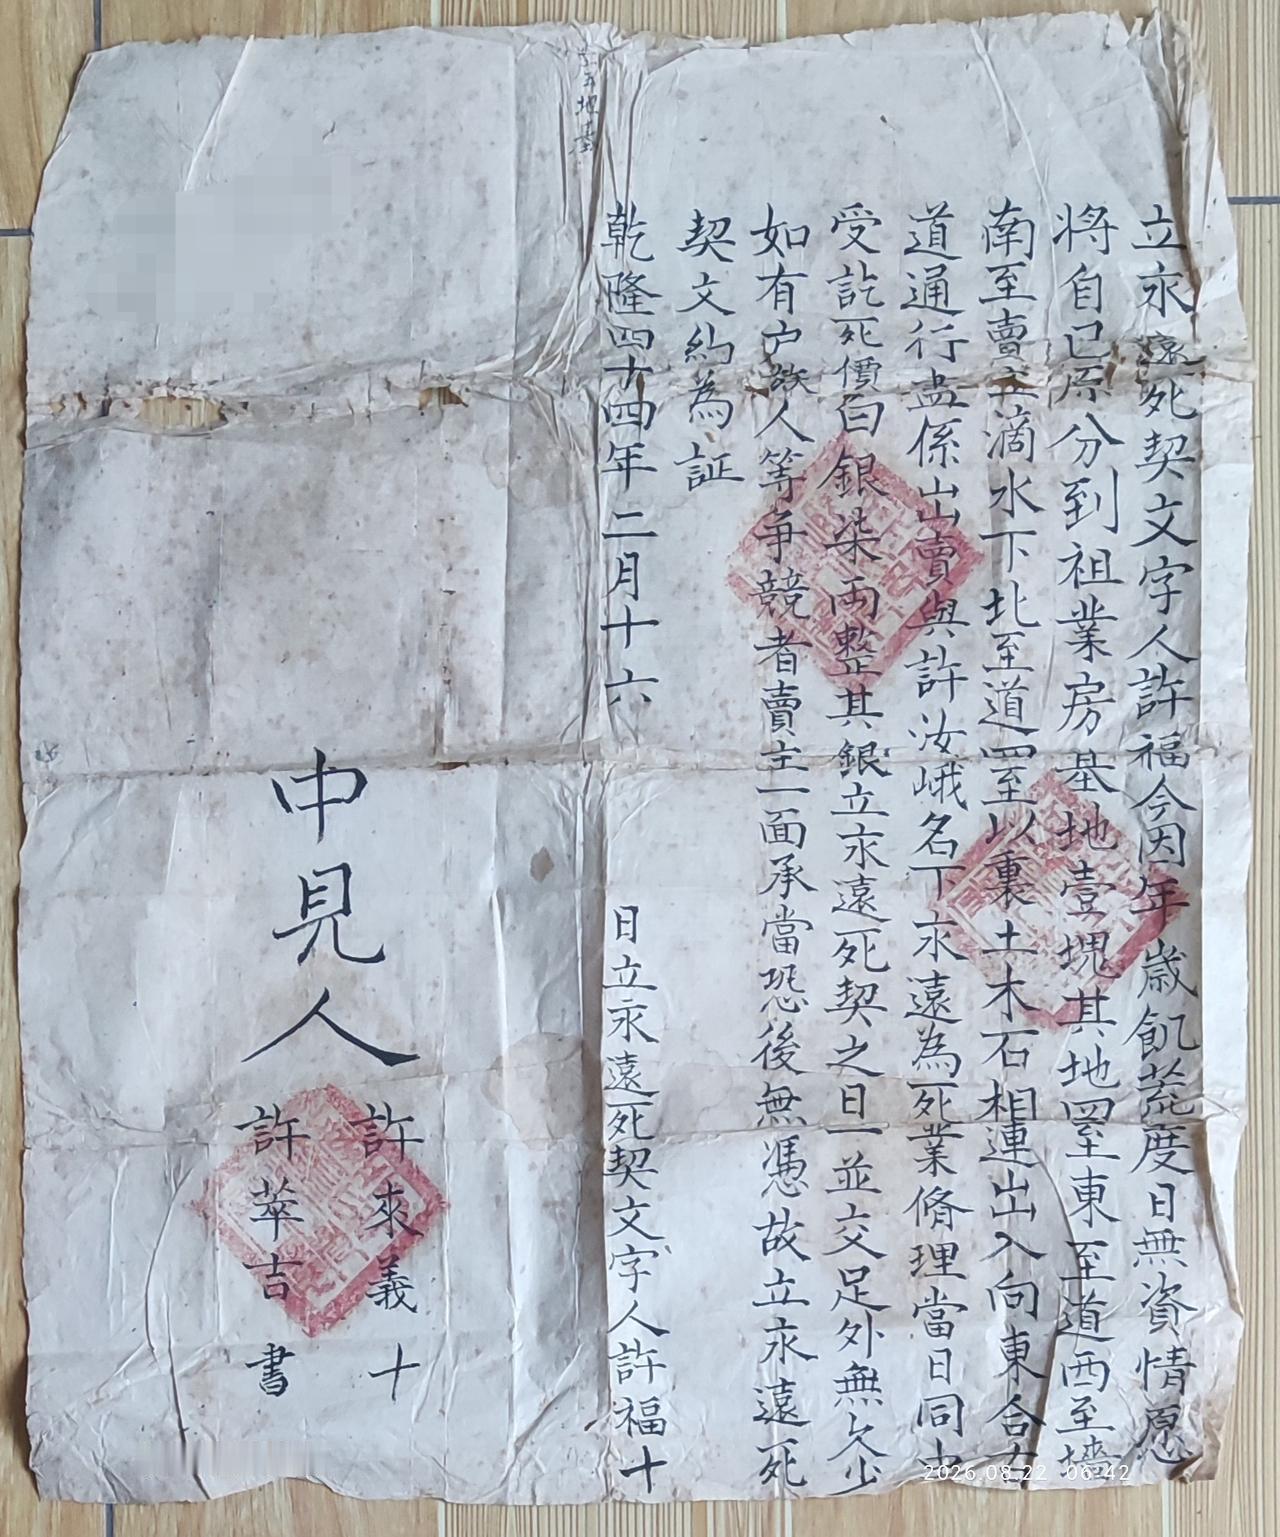 立永遠死契文字人許福今因年歲飢荒度日無資情愿
將自己原分到祖業房基地壹塊其地四至東至道西至墻
南至賣主滴水下北至道四至以裏土木石相連出入向東合古
道通行盡係出賣與許汝峨名下永遠為死業脩理當日同
受訖死價白銀柒兩整其銀立永遠死契之日一並交足外無欠少
如有户族人等爭競者賣主一面承當恐後無憑故立永遠死
契文約為証
乾隆四十四年二月十六
日立永遠死契文字人許福十
中見人
許來義十
許萃吉書
地基
2026.08.22 06:42